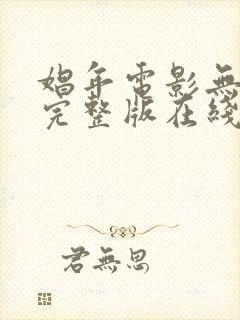 娼年電影無
完整版在綫
君無思